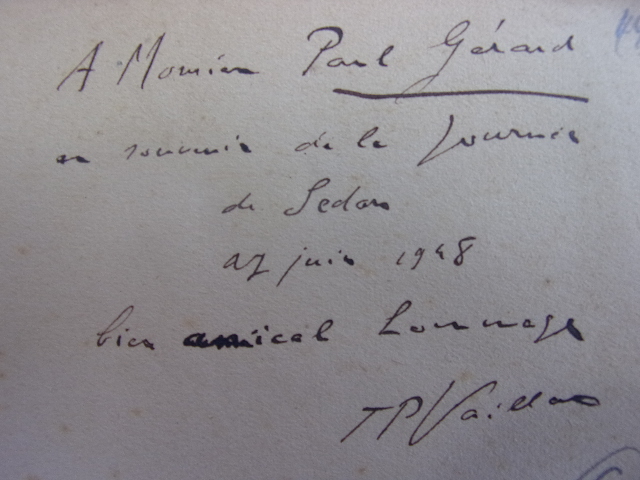 A Monsieur Paul Gérard
en souvenir de la Journée
de Sedan
27 juin 1948
bien amical hommage